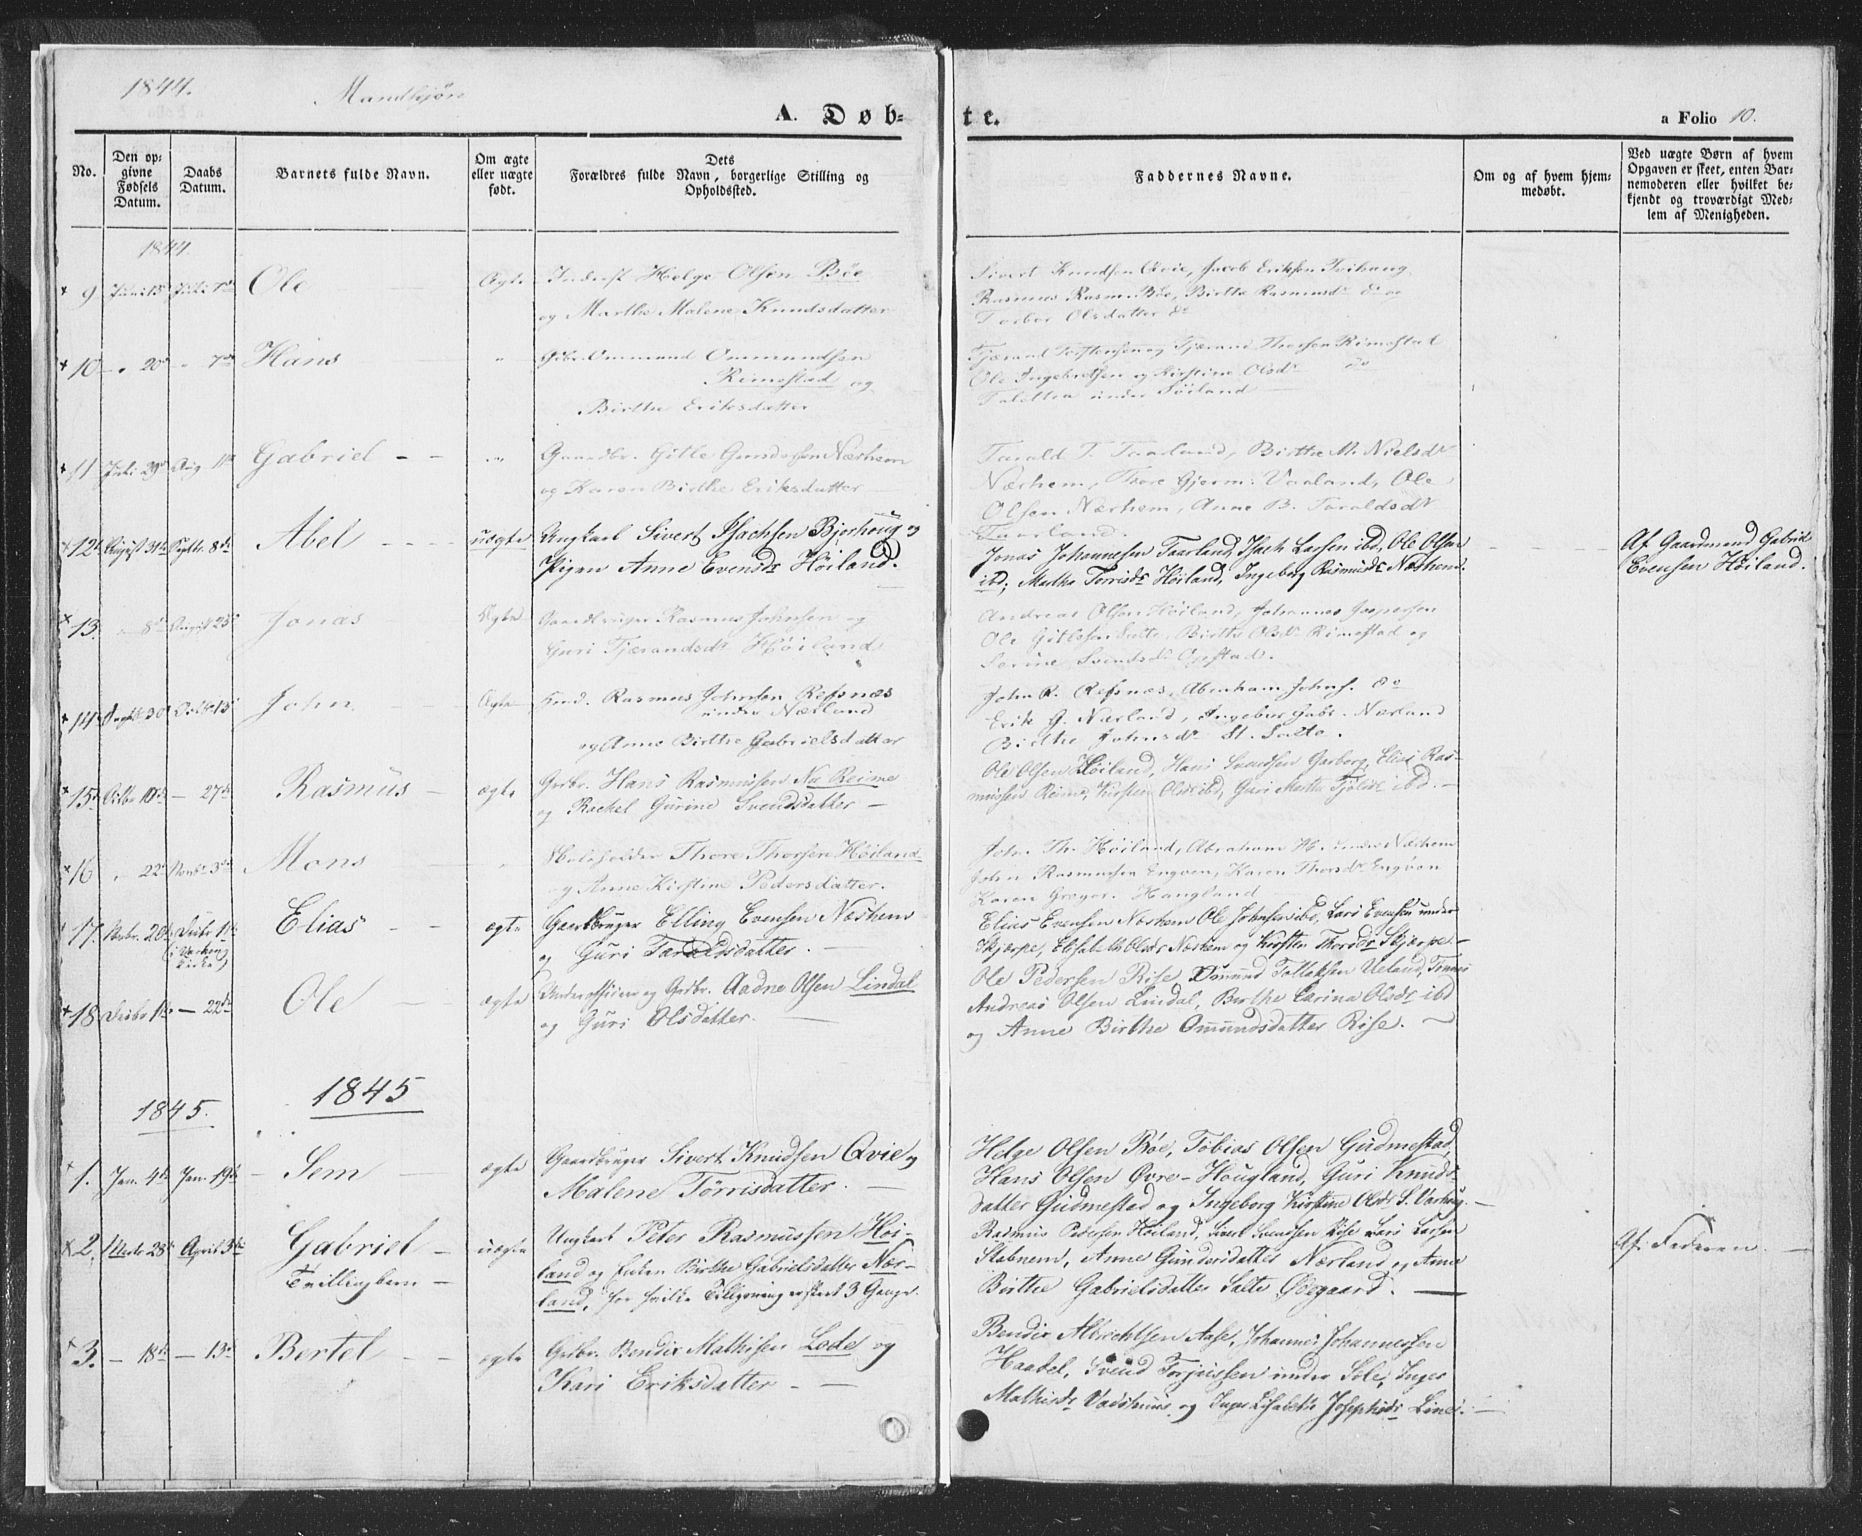 1844.
Mandkjøn
A. Døb-
te.
a Folio 10.
No.
Den op-
givne
Fødsels
Datum.
Daabs
Datum.
Barnets fulde Navn.
Om ægte
eller uægte
født.
Dets
Forældres fulde Navn, borgerlige Stilling og
Opholdssted.
Faddernes Navne.
Om og af hvem hjem-
medøbt.
Ved uægte Børn af hvem
Opgaven er skeet, enten Bar-
nemoderen eller hvilket be-
kjendt og troværdigt Med-
lem af Menigheden.
1844.
9 Ole Ægte Helge Olsen Böe
og Marthe Malene Knudsdatter
Sivert Knudsen Qvie, Jacob Eriksen
Rasmus Rasm. Böe, Birthe Rasmusdr do og
Torbor Olsdatter do
10 " 20 " 7de Hans " Gbr. Ommund Ommundsen
Rimestad og
Birthe Eriksdatter
Tjærand Thorsen Rimestad
Ole Ingebretsen og Kirstine Olsdr do
under Höiland
11 29 Aug. 11 Gabriel " Gaardbr. Gitle Gundersen Nærhem
og Karen Birthe Eriksdatter
Tarald T. Taarland, Birthe M. Nielsdr
Nærhem, Thore Gjerm. Varland, Ole
Olsen Nærhem, Anne B. Taraldsdr
Taarland.
12 August 31te Septbr. 8de Abel uægte Ungkarl Sivert Isachsen Bjorhoug og
Pigen Anne Evensdr Höiland.
Jonas Johannesen Taarland, Isach Larsen ibd, Ole Olsen
ibd, Marthe Torrisdr Höiland, Ingeborg Rasmusdr Nærhem.
Af Gaardmand Gabriel
Evensen Höiland.
13. 8de August 25 Jonas Ægte Gaardbruger Rasmus Johnsen og
Guri Tjærandsdr Höiland
Andreas Olsen Höiland, Johannes Jespersen
Ole Gitlesen Salte, Birthe Olsdr Rimestad og
Serine Svendsdr Opstad.
14 30 Octbr 13 John Ægte Rasmus Johnsen Refsnæs
under Nærland
og Anne Birthe Gabrielsdatter
John R. Refsnæs, Abraham Johns. do
Erik G. Nærland, Ingebor Gabr. Nærland
Birthe Johnsdr St. Salte.
15 Octbr 10de — 27de Rasmus ægte Grdbr. Hans Rasmussen Nv Reime
og Rachel Gurine Svendsdatter —
Ole Olsen Höiland, Hans Svendsen Garborg, Elias Ras-
mussen Reime, Kirsten Olsdr ibd, Guri Marthe ibd. —
16 " 22 Novbr 3de Mons Thore Thorsen Höiland
og Anne Kirstine Pedersdatter.
John Th. Höiland, Abraham H. under Nærhem
John Rasmussen Engven, Karen Thorsdr Engven
Karen Gregor. Haugland
17. Novbr. 20 Decbr 1ste
(i Varhoug
Kirke)
Elias ægte Gaardbruger Elling Evensen Nærhem
og Guri Taraldsdatter. —
Elias Evensen Nærhem, Ole Johnsen ibd, Lars Evensen under
Skjærpe, Olsdr Nærhem og Kirsten Thorsdr Skjærpe —
18 Decbr 1ste — 22de Ole ægte Underofficeer og Grdbr. Aadne Olsen Lindal
og Guri Olsdatter. —
Ole Pedersen Rise, Omund Tollaksen Ueland, Tönnes
Andreas Olsen Lindal, Birthe Carina Olsdr ibd
og Anne Birthe Omundsdatter Rise. —
1845. 1845
1. Jan. 4de Jan. 19de Sem ægte Gaardbruger Sivert Knudsen Qvie og
Malene Törrisdatter. —
Helge Olsen Böe, Tobias Olsen Gudmestad,
Hans Olsen Øvre-Hougland, Guri Knuds-
datter Gudmestad og Ingeborg Kirstine Olsdr S. Varhoug. —
2. Marts 28de April 3de Gabriel —
Tvillingbarn —
uægte Ungkarl Peter Rasmussen Höi-
land og Enken Birthe Gabrielsdatter Nær-
land, for hvilke Tillysning er skeet 3 Gange.
Rasmus Pedersen Höiland, Svend Svendsen Rise, Lars Larsen
Stabnem, Anne Gundersdatter Nærland og Anne
Birthe Gabrielsdatter Salte Ødegaard. —
Af Faderen. —
3. — 18de — 13de Bertel ægte Grdbr. Bendix Mathisen Lode og
Kari Eriksdatter — —
Bendix Albrechtsen Aase, Johannes Johannessen
Haadel, Svend Torjussen under Sole, Inger
Mathisdr Vadshuus og Inger Elisabeth Josephsdr Line. —